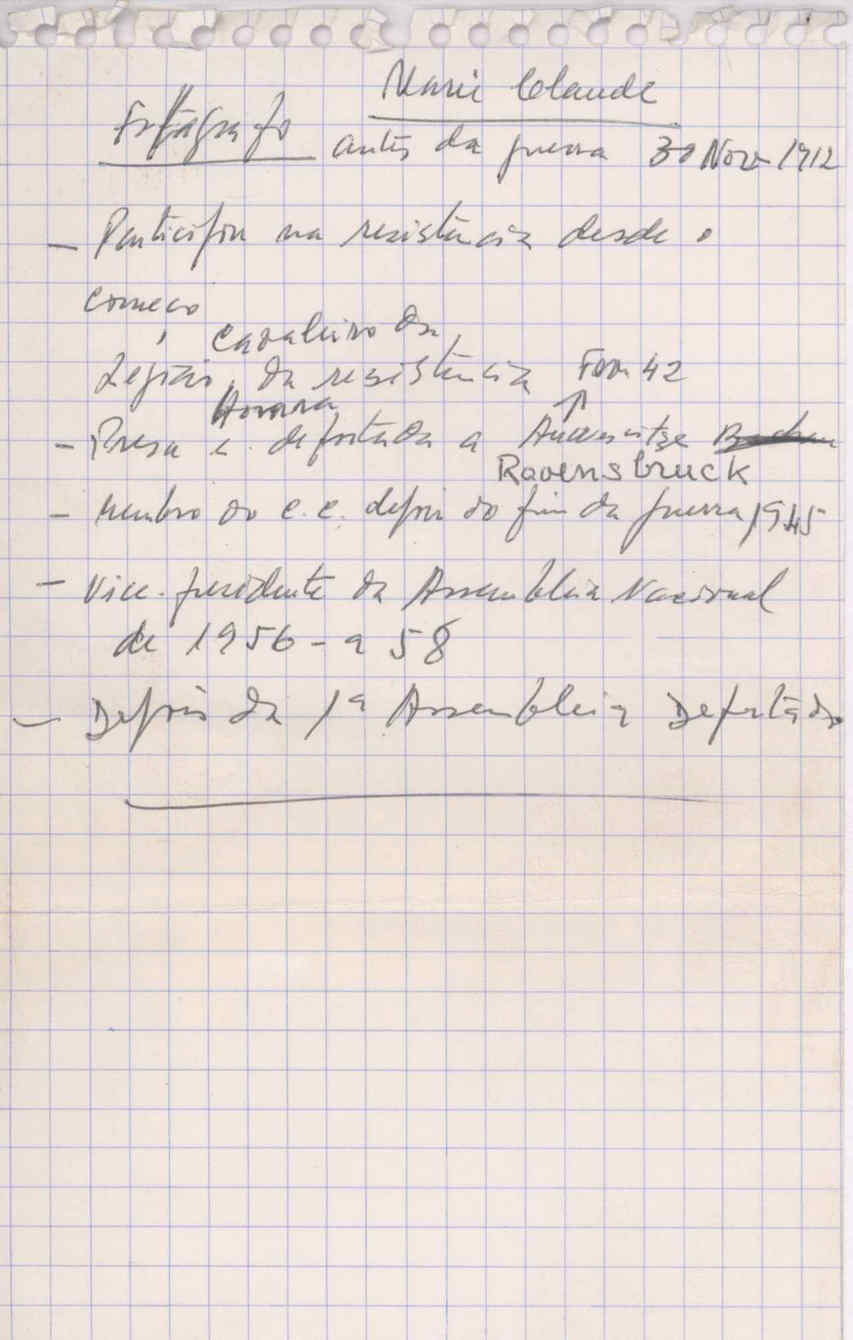 Marie Claude
Fotógrafo antes da guerra 30 Nov 1912
- Participou na resistência desde o
começo
Cavaleiro da
Legião da resistência Fev. 42
Honra
- Presa e deportada a Auxswitze
Ravensbruck
- Membro do c.c. depois do fim da guerra 1945
- Vice-presidente da Assembleia Nacional
de 1956 - a 58
- Depois da 1ª Assembleia Deputado